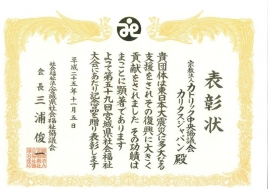 表彰状
宗教法人カトリック中央協議会
カリタスジャパン殿
貴団体は東日本大震災に多大なる
支援をされその復興に大きく
貢献をされましたその功績は
まことに顕著であります
よって第五十九回宮城県社会福祉
大会にあたり記念品を贈り表彰します
平成二十五年十一月五日
社会福祉法人宮城県社会福祉協議会
会長 三浦俊一